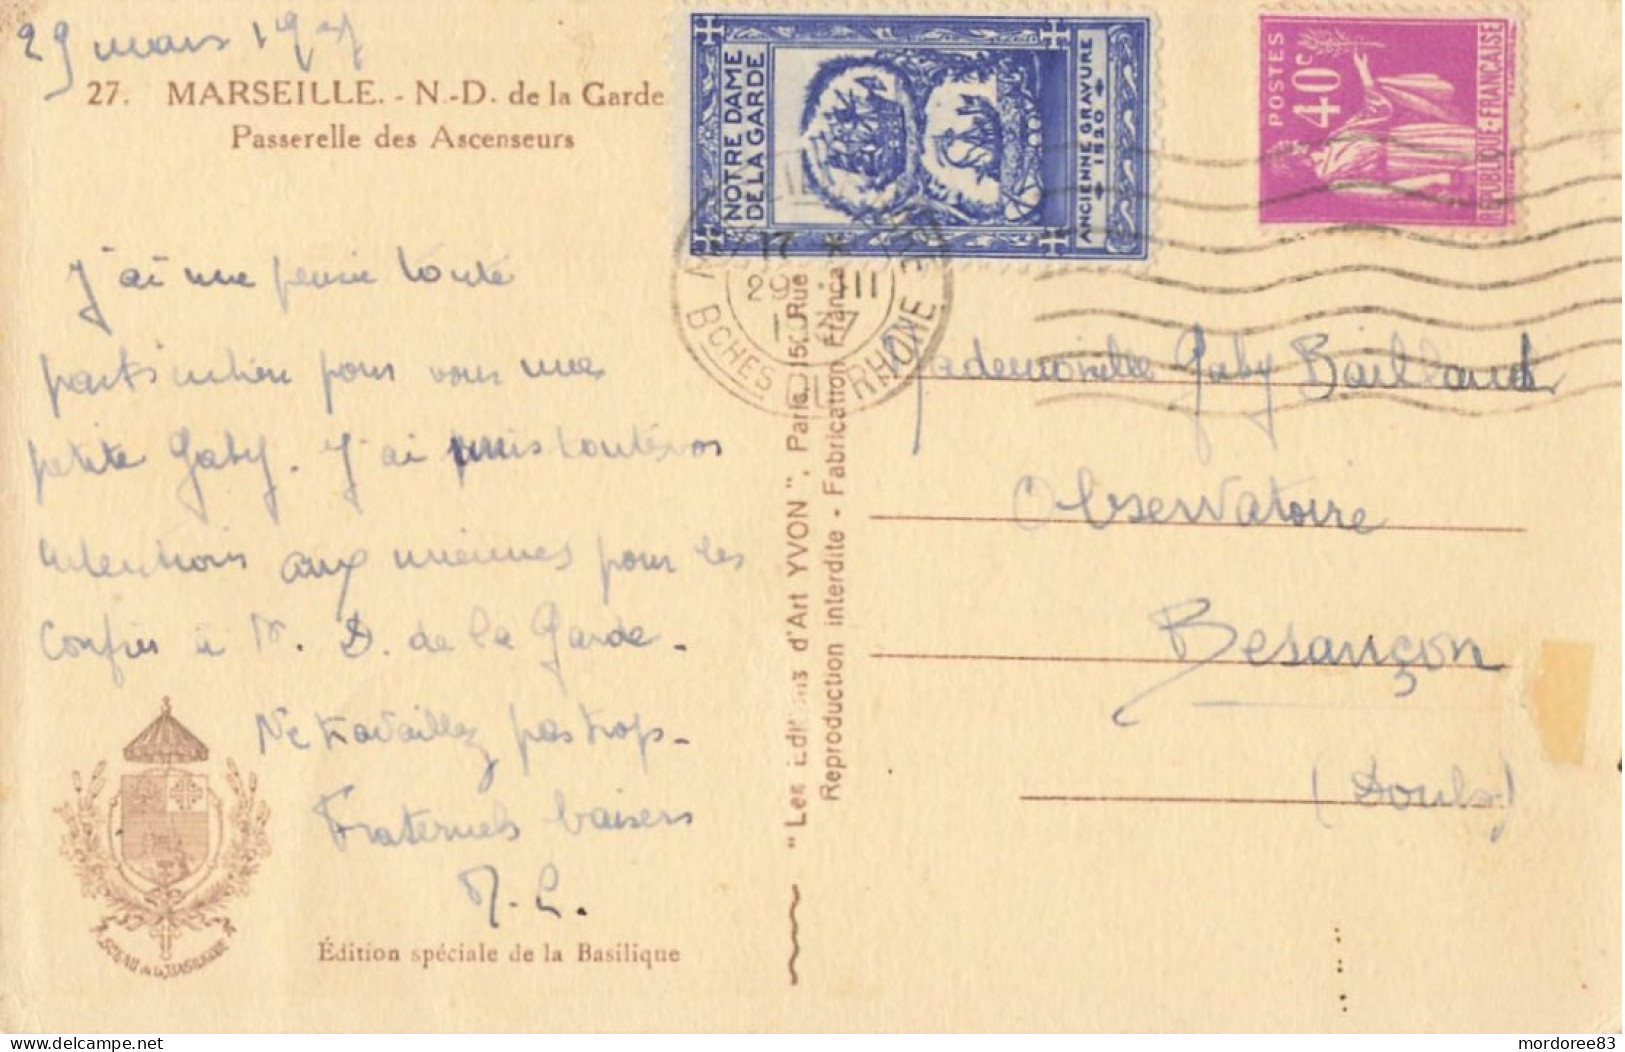 29 mars 1937
27. MARSEILLE. - N.-D. de la Garde
Passerelle des Ascenseurs
J'ai une pensée toute
particulière pour vous ma
petite Gaby. J'ai mis toutes vos
intentions aux miennes pour les
confier à N. D. de la Garde.
Ne travaillez pas trop.
Fraternels baisers
M. L.
Édition spéciale de la Basilique
SCEAU de la BASILIQUE
"Les Editions d'Art YVON", Paris, 15, Rue
Reproduction interdite - Fabrication Française
NOTRE DAME
DE LA GARDE
ANCIENNE GRAVURE
1820
POSTES
40c
REPUBLIQUE FRANÇAISE
17 *
29 III
1937
BCHES DU RHONE
Mademoiselle Gaby Baillaud
Observatoire
Besançon
(Doubs)
mordoree83